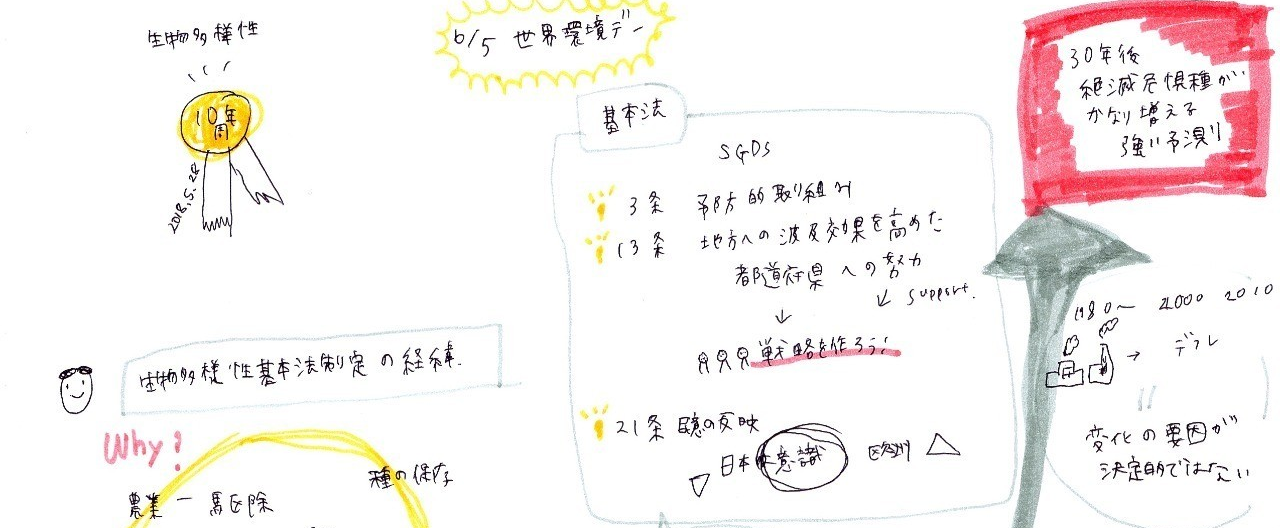 生物多様性
10年
周
2018.5.28
6/5 世界環境デー
基本法
SGDS
3条 予防的取り組み
13条 地方への波及効果を高めた
都道府県への努力
↓ ↓ support.
戦略を作ろう!
21条 民意の反映
▽ 日本は意識 欧州 △
30年後
絶滅危惧種が
かなり増える
強い予測!!
1980〜 2000 2010
→ デフレ
変化の要因が
決定的ではない
生物多様性基本法制定の経緯.
Why?
種の保存
農業 ー 駆除